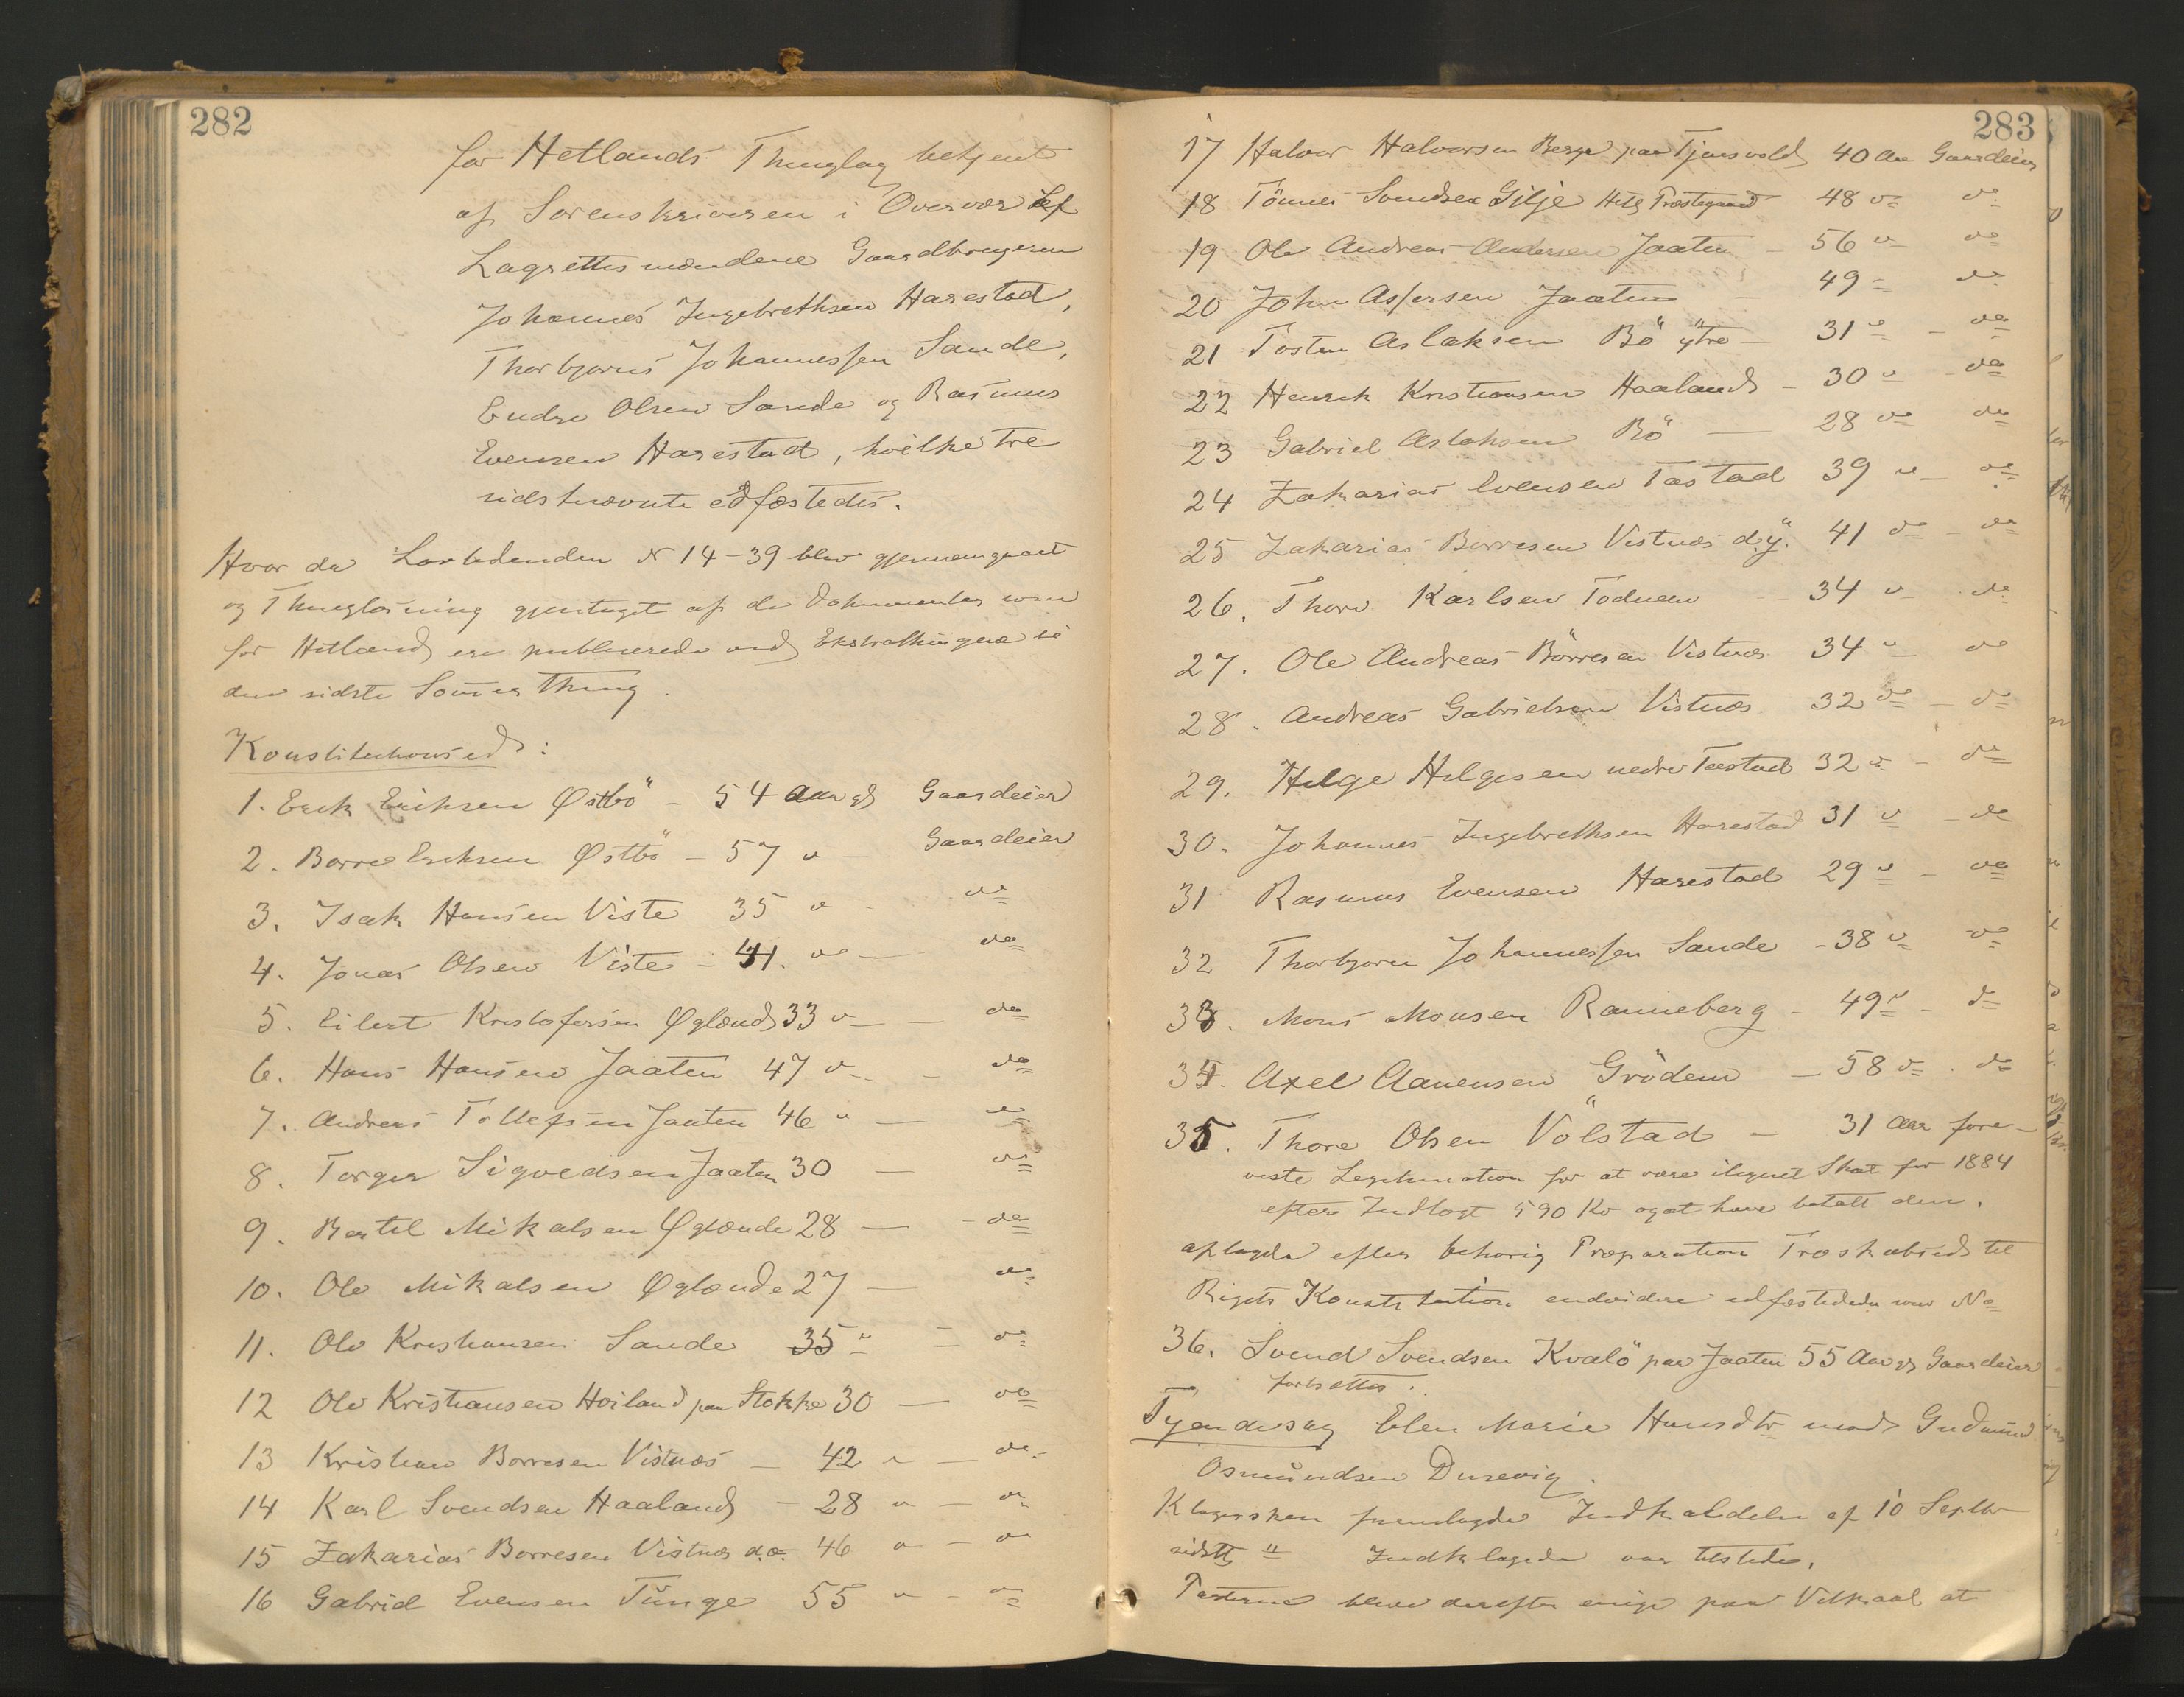 282
for Hetlands Thinglag betjent
af Sorenskriveren i Overvær af
Lagrettesmændene Gaardbrugeren
Johannes Ingebrethsen Harestad,
Thorbjørns Johannessen Sande,
Endre Olsen Sande og Rasmus
Evensen Harestad, hvilke tre
sidstnævnte edfæstedes.
Hvor da Lovbudenden N 14-39 blev gjennemgaaet
og Thinglæsning gjentaget af de Dokumenter som
for Hetland er publicerede ved Ekstrathingene i
den sidste Sommer Thing.
Konstitutionsed:
1. Erik Eriksen Østbö - 54 Aar gl Gaardeier
2. Børre Eriksen Østbö - 57 " - Gaardeier
3. Isak Hansen Viste 35 " - do
4. Jonas Olsen Viste - 41. do - do
5. Eilert Kristofersen Øglænd 33 " - do
6. Hans Hansen Jaaten 47 " - do
7. Andreas Tollefsen Jaaten 46 " - do
8. Torger Sigvedsen Jaaten 30 - do
9. Bertel Mikalsen Øglænde 28 - do
10. Ole Mikalsen Øglænde 27 - do
11. Ole Kristiansen Sande 35 " - do
12 Ole Kristiansen Hoiland paa Stokke 30 - do
13 Kristian Borresen Vistnæs - 42 " - do
14 Karl Svendsen Haaland - 28 " - do
15 Zakarias Borresen Vistnæs d.æ. 46 " - do
16 Gabriel Evensen Tunge 55 " - do
283
17 Halvor Halvorsen Berge paa Tjensvold 40 Aar Gaardeier
18 Tönnes Svendsen Gilje Hetl Præstegaard 48 do do
19 Ole Andreas Andersen Jaaten - 56 " do
20 John Assersen Jaaten 49 - do
21 Tosten Aslaksen Bö ytre - 31 " - do
22 Henrik Kristiansen Haaland - 30 " - do
23 Gabriel Aslaksen Bö - 28 do do
24 Zakarias Evensen Tastad 39 " - do
25 Zakarias Borresen Vistnæs d.y. 41 do - do
26. Thore Karlsen Todnem 34 " do
27. Ole Andreas Börresen Vistnæs 34 " do
28. Andreas Gabrielsen Vistnæs 32 do - do
29. Helge Helgesen nedre Tastad 32 " - do
30. Johannes Ingebrethsen Harestad 31 " - do
31 Rasmus Evensen Harestad 29 " - do
32 Thorbjørn Johannessen Sande - 38 " do
33. Mons Monsen Ranneberg - 49 " - do
34. Axel Aanensen Grödem - 58 do . do
35. Thore Olsen Völstad - 31 Aar fore-
viste Legitimation for at være ilignet Skat for 1884
efter Indtægt 590 Kr og at have betalt den.
aflagde efter behørig Præparation Troskabsed til
Rigets Konstitution endvidere edfæstedes som No
36. Svend Svendsen Kvalö paa Jaaten 55 Aar gl Gaardeier
fortsættes.
Tyendesag Elen Marie Hansdtr mod Gudmund
Osmundsen Dusevig.
Klagersken fremlagde Indkaldelse af 10 Septbr
sidstl " Indklagede var tilstede.
Parterne bleve derefter enige paa Vilkaar at